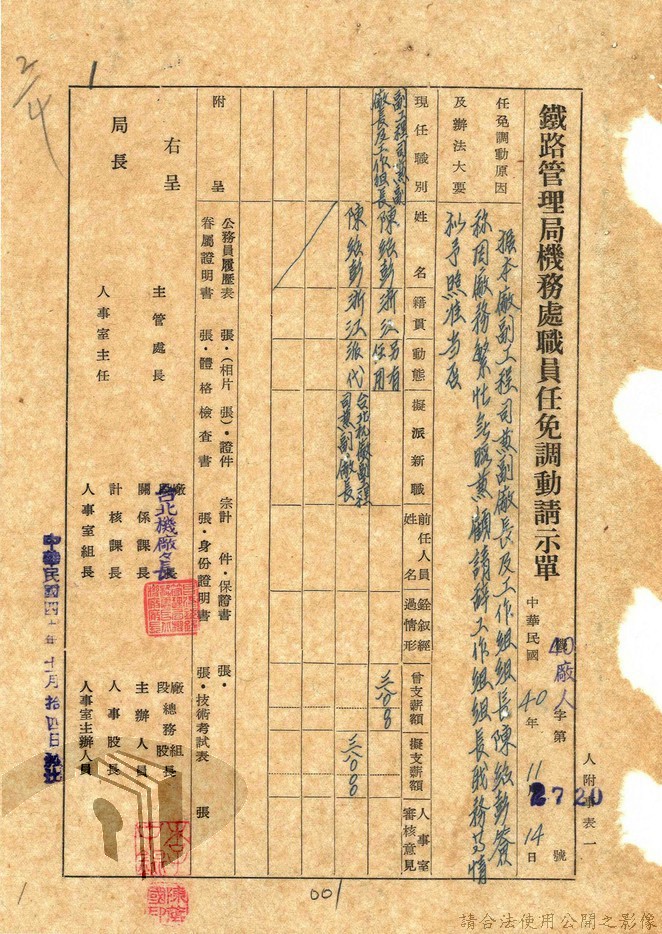 鐵路管理局機務處職員任免調動請示單
中華民國40年11月14日
40廠人字第2720號
人附表一
任免調動原因及辦法大要
據本廠副工程司兼副廠長及工作組組長陳絃彭簽
稱因廠務繁忙無暇兼顧請辭工作組組長職務等情
擬予照准當否
現任職別
姓名
籍貫
動態
擬派新職
前任人員姓名
銓敘經過情形
曾支薪額
擬支薪額
人事室審核意見
副工程司兼副
廠長及工作組長
陳絃彭
浙江
另有任用
陳絃彭
浙江
派代
台北機廠副工程
司兼副廠長
附呈
公務員履歷表 張·(相片 張)·證件 宗計 件·保證書 張·
眷屬證明書 張·體格檢查書 張·身份證明書 張·技術考試表 張
右呈
局長
主管處長
人事室主任
台北機廠廠長
關係課長
計核課長
人事室組長
廠段總務組股長
主辦人員
人事股長
人事室主辦人員
中華民國四十年十一月拾四日
001
2/4
1
請合法使用公開之影像